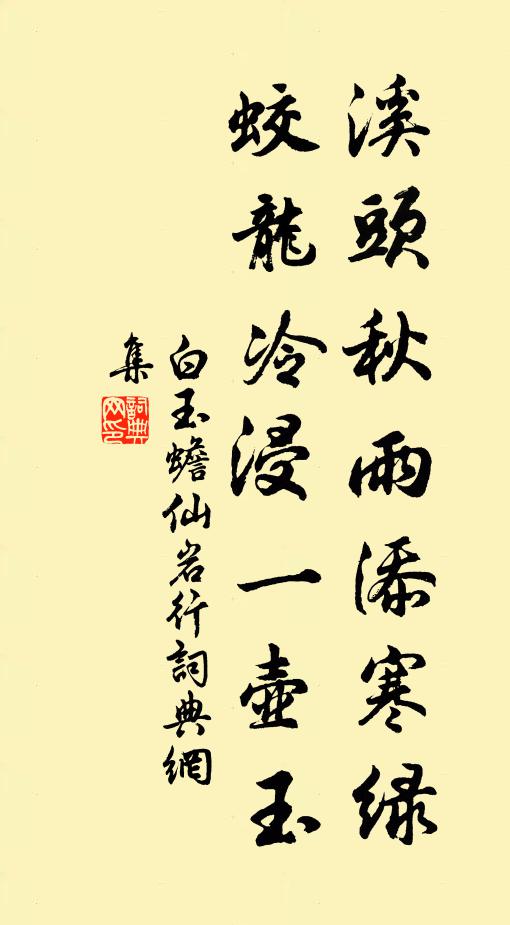 溪頭秋雨添寒綠
蛟龍冷浸一壺玉
白玉蟾仙岩行詞典網
集
詞典
网印